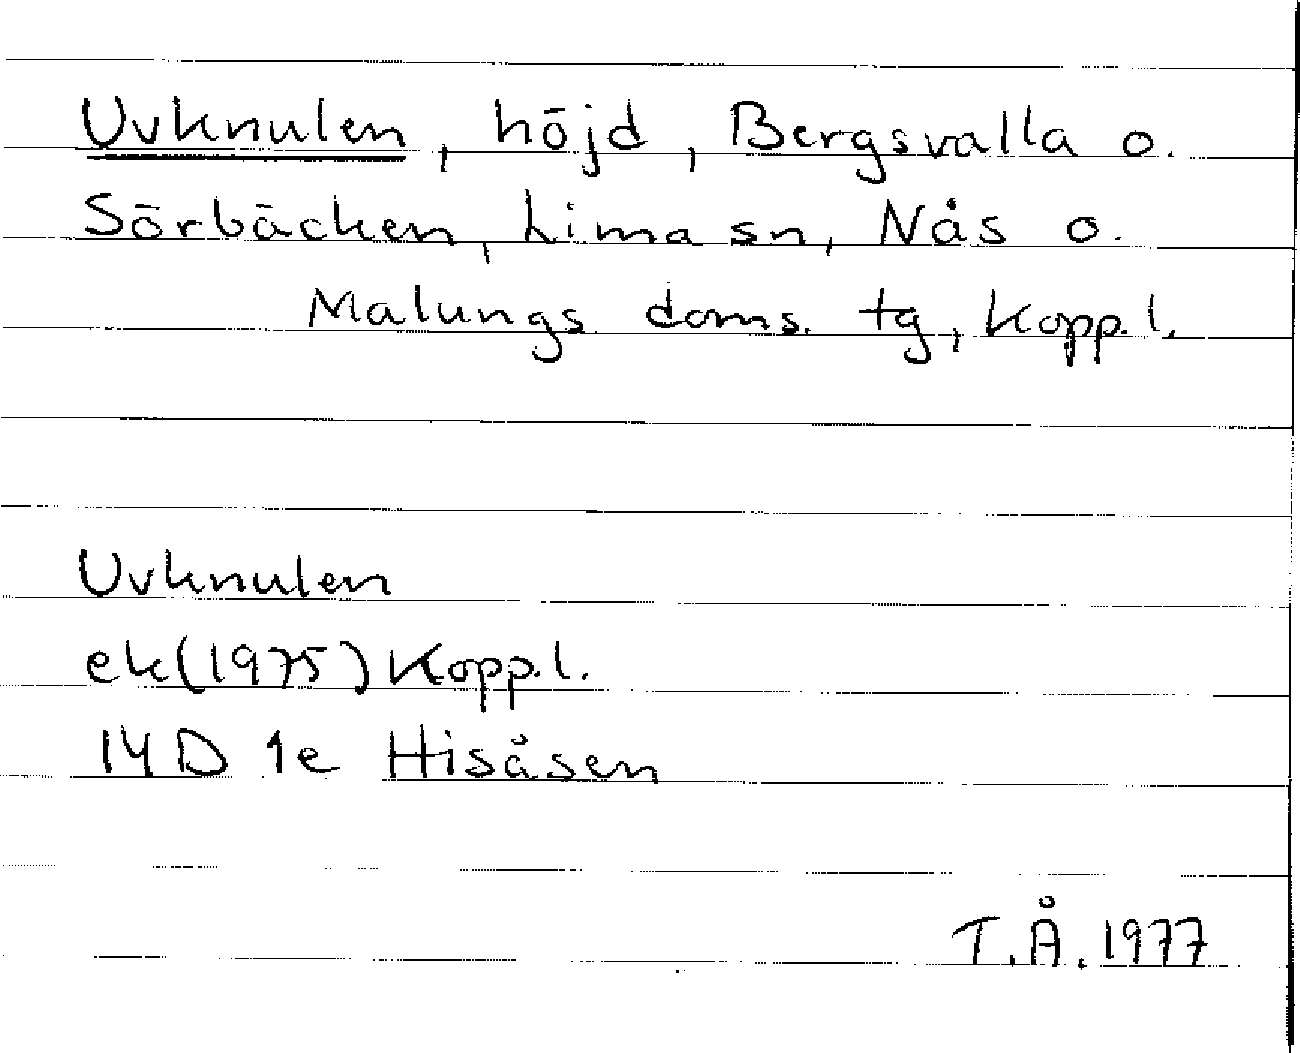 Uvknulen, höjd, Bergsvalla o.
Sörbäcken, Lima sn, Nås o.
Malungs doms. tg, Kopp. l.
Uvknulen
ek (1975) Kopp. l.
14 D 1e Hisåsen
T.Å. 1977